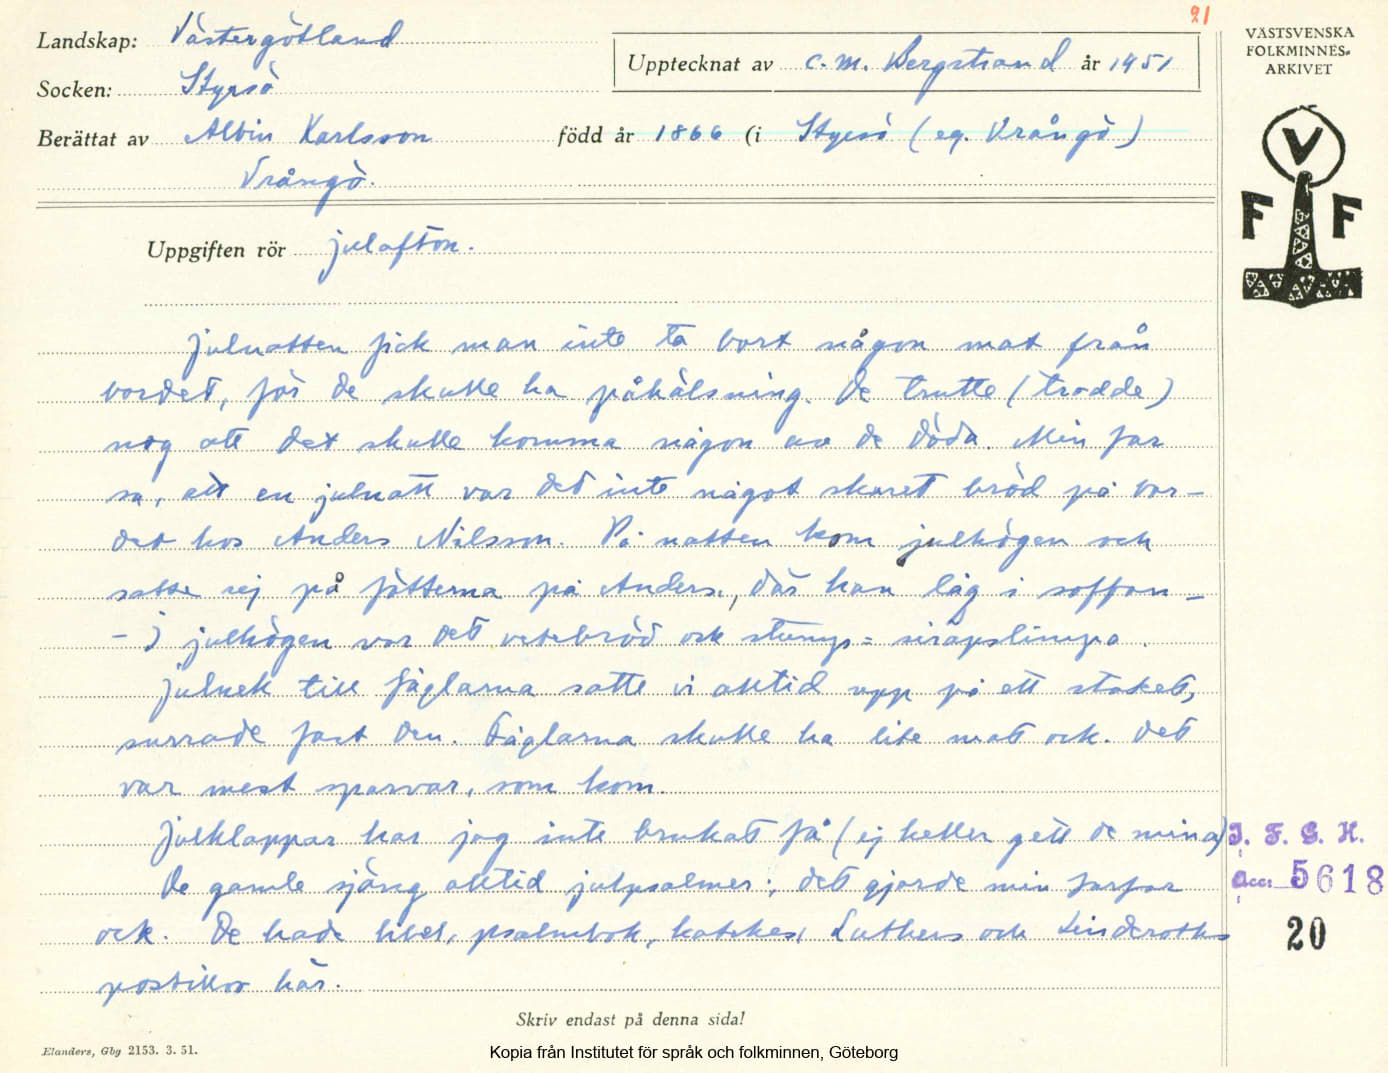 21
Landskap: Västergötland
Upptecknat av C. M. Bergstrand år 1951
Socken: Styrsö
Berättat av Albin Karlsson född år 1866 (i Styrsö (eg. Vrångö)
Vrångö.
Uppgiften rör julafton.
Julnatten fick man inte ta bort någon mat från
bordet, för de skulle ha påhälsning. De trutte (trodde)
nog att det skulle komma någon av de döda. Min far
sa, att en julnatt var det inte något skuret bröd på bor-
det hos Anders Nilsson. På natten kom julhögen och
satte sej på fötterna på Anders, där han låg i soffan –
– I julhögen var det vetebröd och stump= sirapslimpa.
Julnek till fåglarna satte vi alltid upp på ett staket,
surrade fast den. Fåglarna skulle ha lite mat ock. Det
var mest sparvar, som kom.
Julklappar har jag inte brukat få (ej heller gett de mina)
De gamle sjöng alltid julpsalmer; det gjorde min farfar
ock. De hade bibel, psalmbok, katekes, Luthers och Linderoths
postillor här.
Skriv endast på denna sida!
Elanders, Gbg 2153. 3. 51.
Kopia från Institutet för språk och folkminnen, Göteborg
VÄSTSVENSKA
FOLKMINNES-
ARKIVET
V
F F
I. F. G. H.
Acc: 5618
20